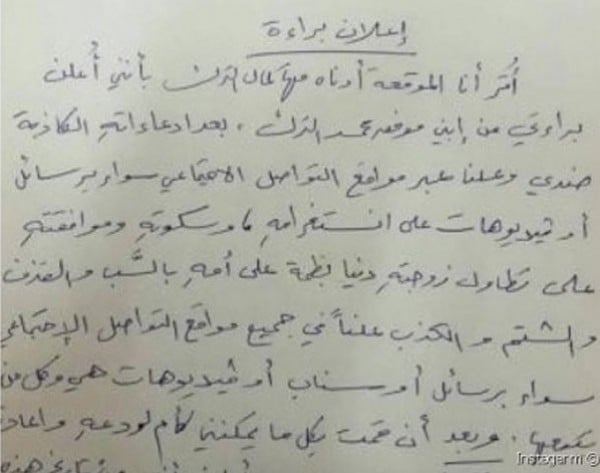 إعلان براءة
أُقر أنا الموقعة أدناه منى كمال الترك بأنني أُعلن
براءتي من إبني موفق محمد الترك ، بعد ادعاءاته الكاذبة
ضدي وعلنا عبر مواقع التواصل الاجتماعي سواء برسائل
أو فيديوهات على انستغرامه وسكوته وموافقته
على تطاول زوجته دنيا بطمة على أمه بالسَّب والقذف
والشتم والكذب علناً في جميع مواقع التواصل الإجتماعي
سواء برسائل أو سناب أو فيديوهات هي وكل من
يتبعها . وبعد أن قمت بكل ما يمكنني كأم لردعه واعادة
Instagarm ©